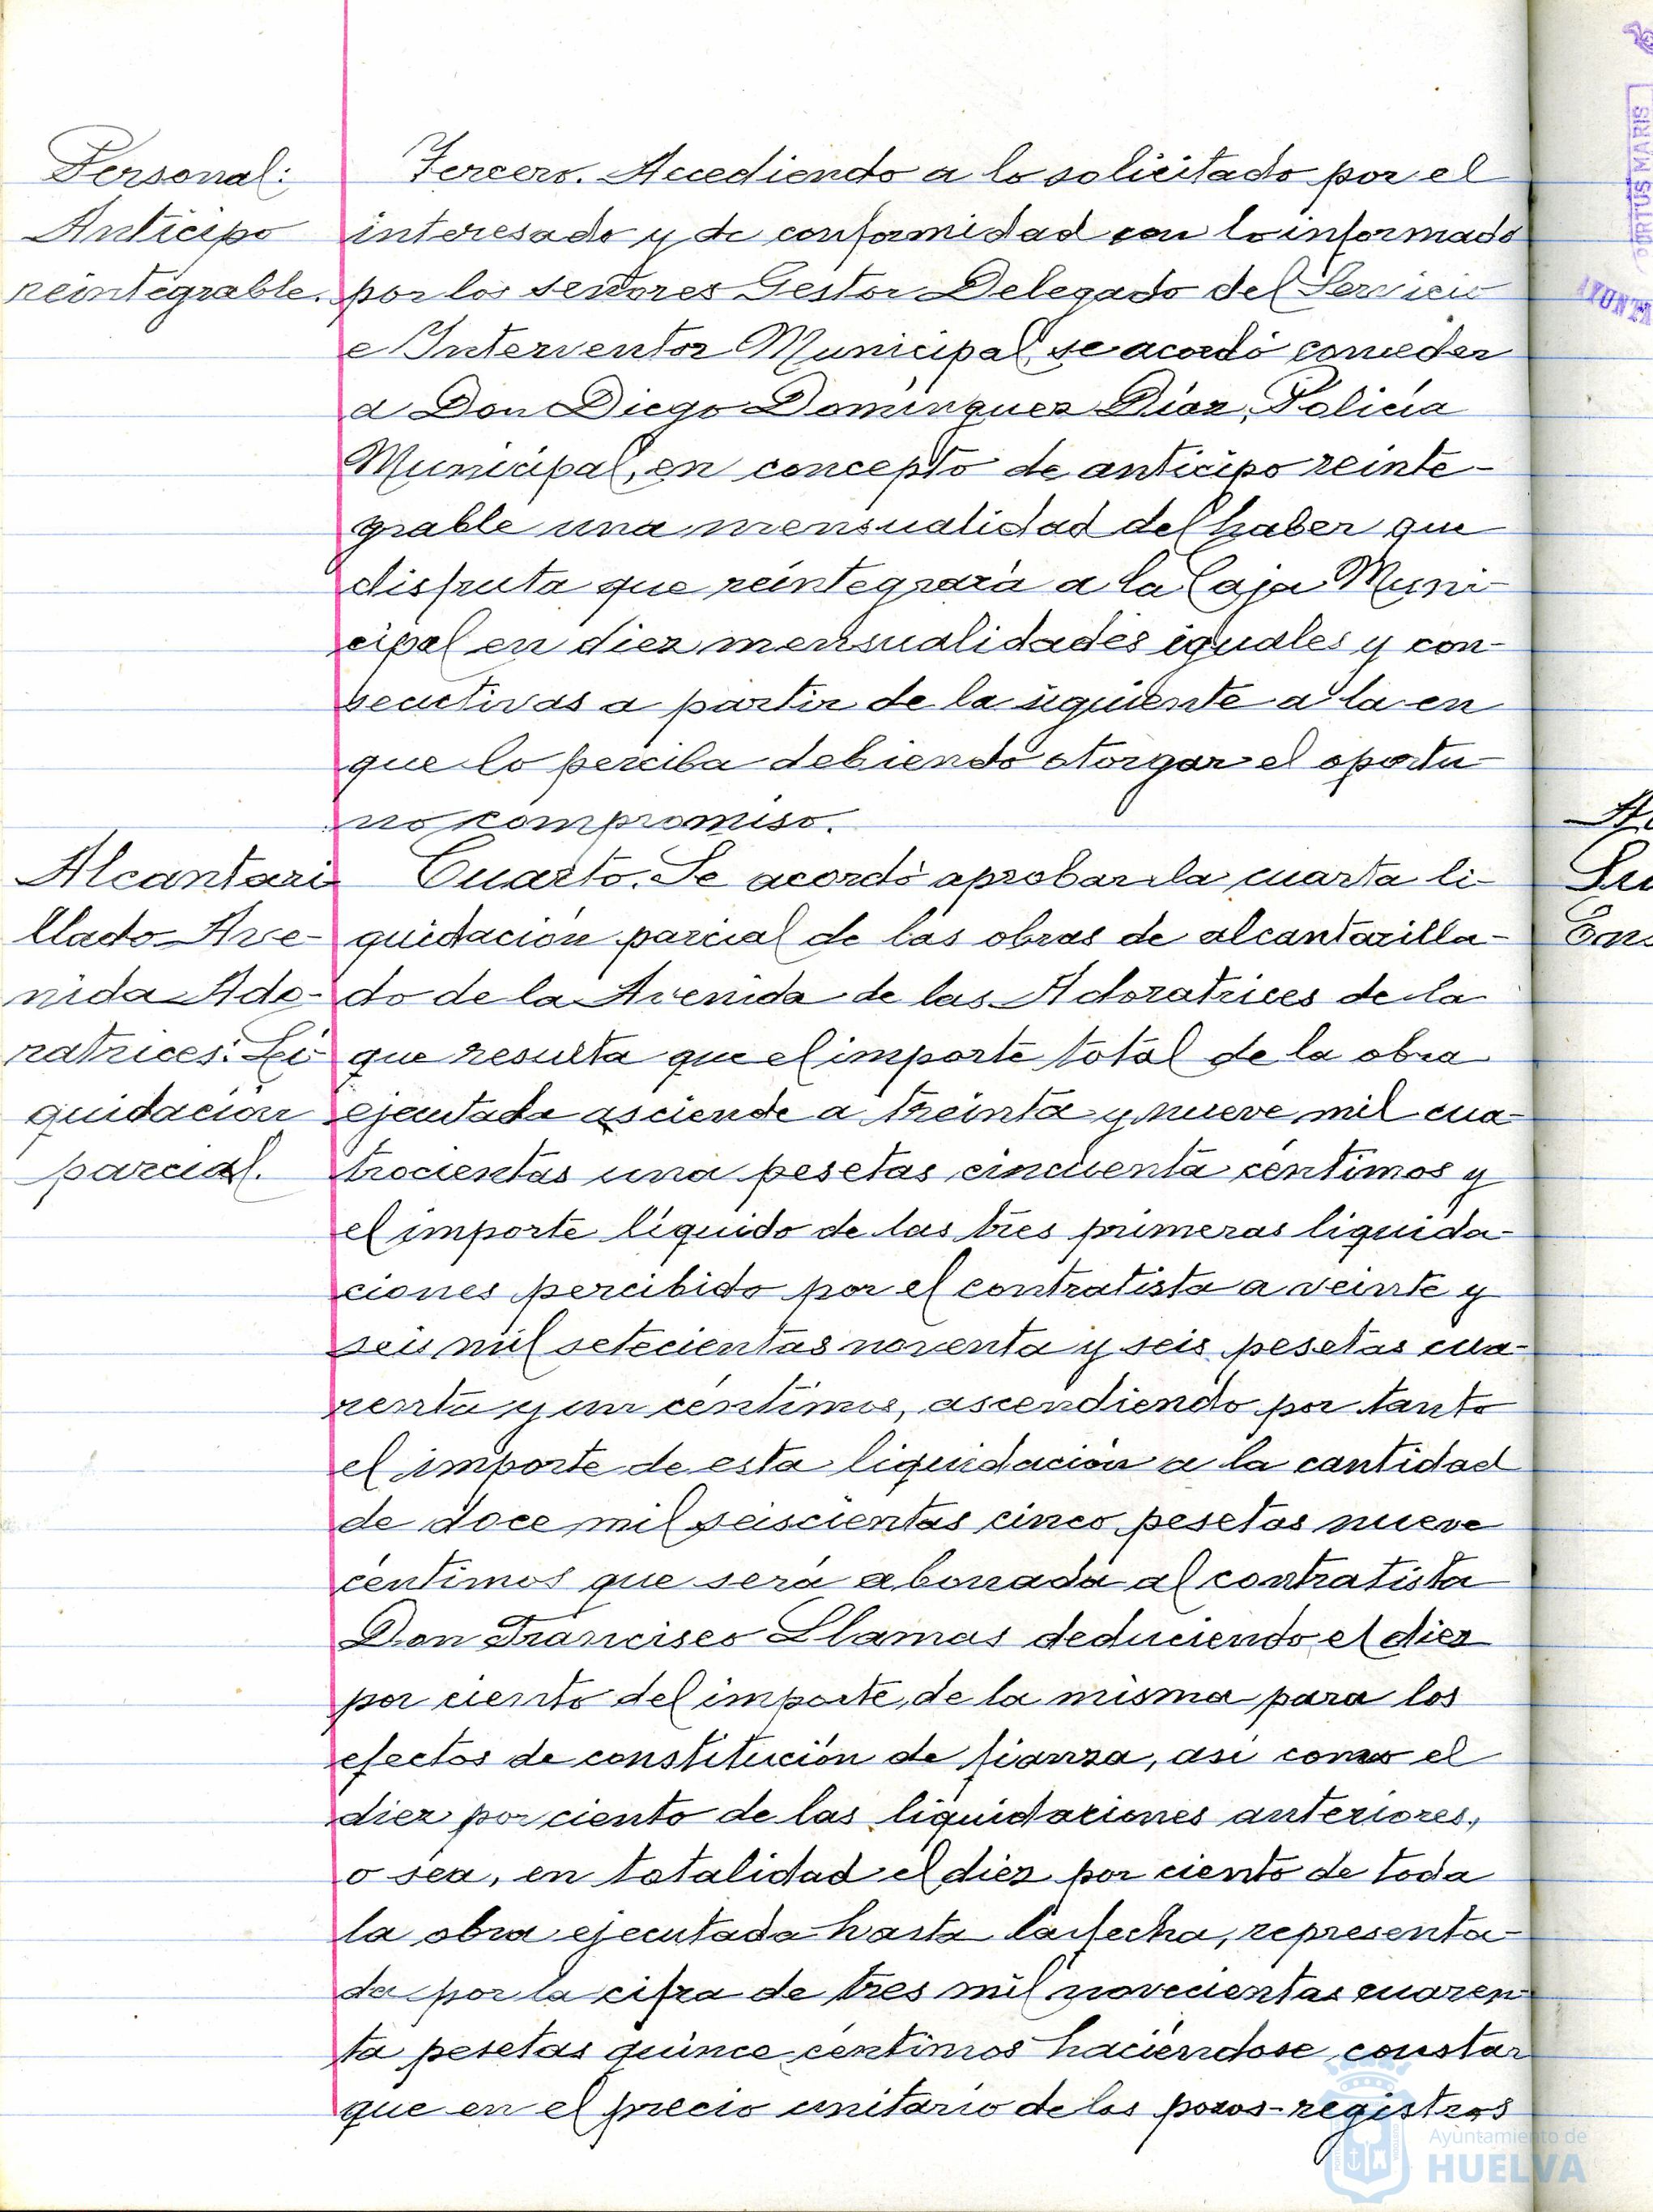 Personal:
Anticipo
reintegrable.
Tercero. Accediendo a lo solicitado por el
interesado y de conformidad con lo informado
por los señores Gestor Delegado del Servicio
e Interventor Municipal, se acordó conceder
a Don Diego Domínguez Díaz, Policía
Municipal, en concepto de anticipo reinte-
grable una mensualidad del haber que
disfruta que reintegrará a la Caja Muni-
cipal en diez mensualidades iguales y con-
secutivas a partir de la siguiente a la en
que lo perciba debiendo otorgar el oportu-
no compromiso.
Alcantari
llado Ave-
nida Ado-
ratrices: Li-
quidación
parcial.
Cuarto. Se acordó aprobar la cuarta li-
quidación parcial de las obras de alcantarilla-
do de la Avenida de las Adoratrices de la
que resulta que el importe total de la obra
ejecutada asciende a treinta y nueve mil cua-
trocientas una pesetas cincuenta céntimos y
el importe líquido de las tres primeras liquida-
ciones percibido por el contratista a veinte y
seis mil setecientas noventa y seis pesetas cua-
renta y un céntimos, ascendiendo por tanto
el importe de esta liquidación a la cantidad
de doce mil seiscientas cinco pesetas nueve
céntimos que será abonada al contratista
Don Francisco Llamas deduciendo el diez
por ciento del importe de la misma para los
efectos de constitución de fianza, así como el
diez por ciento de las liquidaciones anteriores,
o sea, en totalidad el diez por ciento de toda
la obra ejecutada hasta la fecha, representa-
da por la cifra de tres mil novecientas cuaren-
ta pesetas quince céntimos haciéndose constar
que en el precio unitario de los pozos-registros
PORTUS MARIS
AYUNTA
Ayuntamiento de
HUELVA